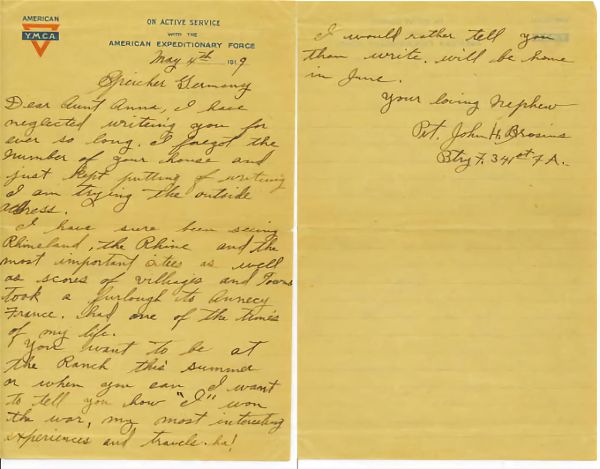 AMERICAN
Y.M.C.A.
ON ACTIVE SERVICE
WITH THE
AMERICAN EXPEDITIONARY FORCE
May 4th 1919
Speicher Germany
Dear Aunt Anna, I have
neglected writing you for
ever so long. I forgot the
number of your house and
just kept putting of writing
I am trying the outside
address.
I have sure been seeing
Rhineland, the Rhine and the
most important cities as well
as scores of villiages and Towns
Took a furlough to Annecy
France. Had one of the times
of my life.
You want to be at
the Ranch this summer
or when you can I want
to tell you how "I" won
the war, my most interesting
experiences and travels. ha!
I would rather tell you
than write. will be home
in June.
Your loving Nephew
Pvt. John H. Brosius
Btry F. 341st F.A.